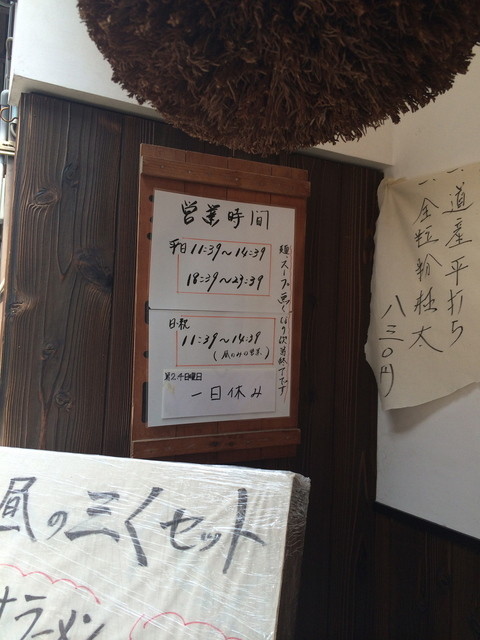 営業時間
平日 11:39～14:39
18:39～23:39
日・祝
11:39～14:39
(昼のみの営業)
第2,4日曜日
一日休み
麺・スープ無くなり次第終了です
道産平打ち
全粒粉極太
八三〇円
昼の三くセット
ラーメン